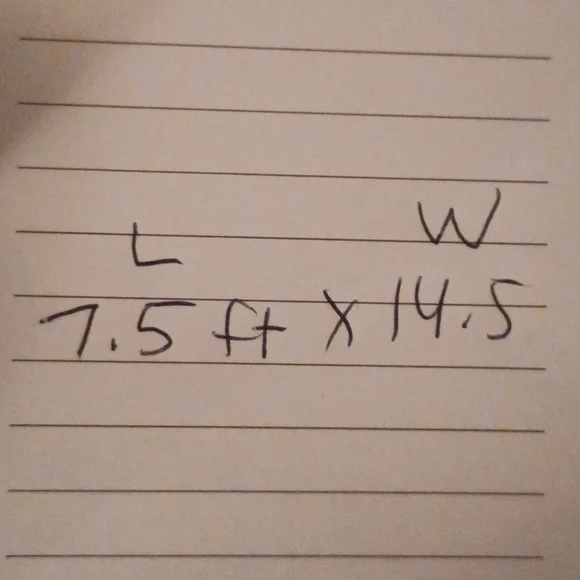 L W
7.5 ft x 14.5